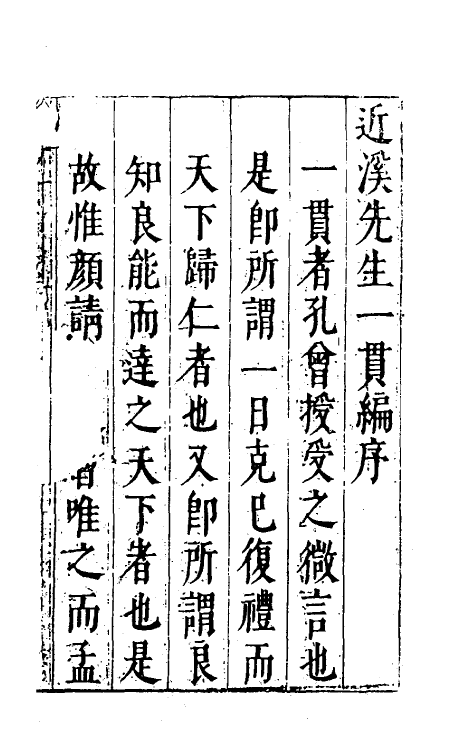 近溪先生一貫編序
一貫者孔曾授受之微言也
是卽所謂一日克己復禮而
天下歸仁者也又卽所謂良
知良能而達之天下者也是
故惟顔請唯之而孟